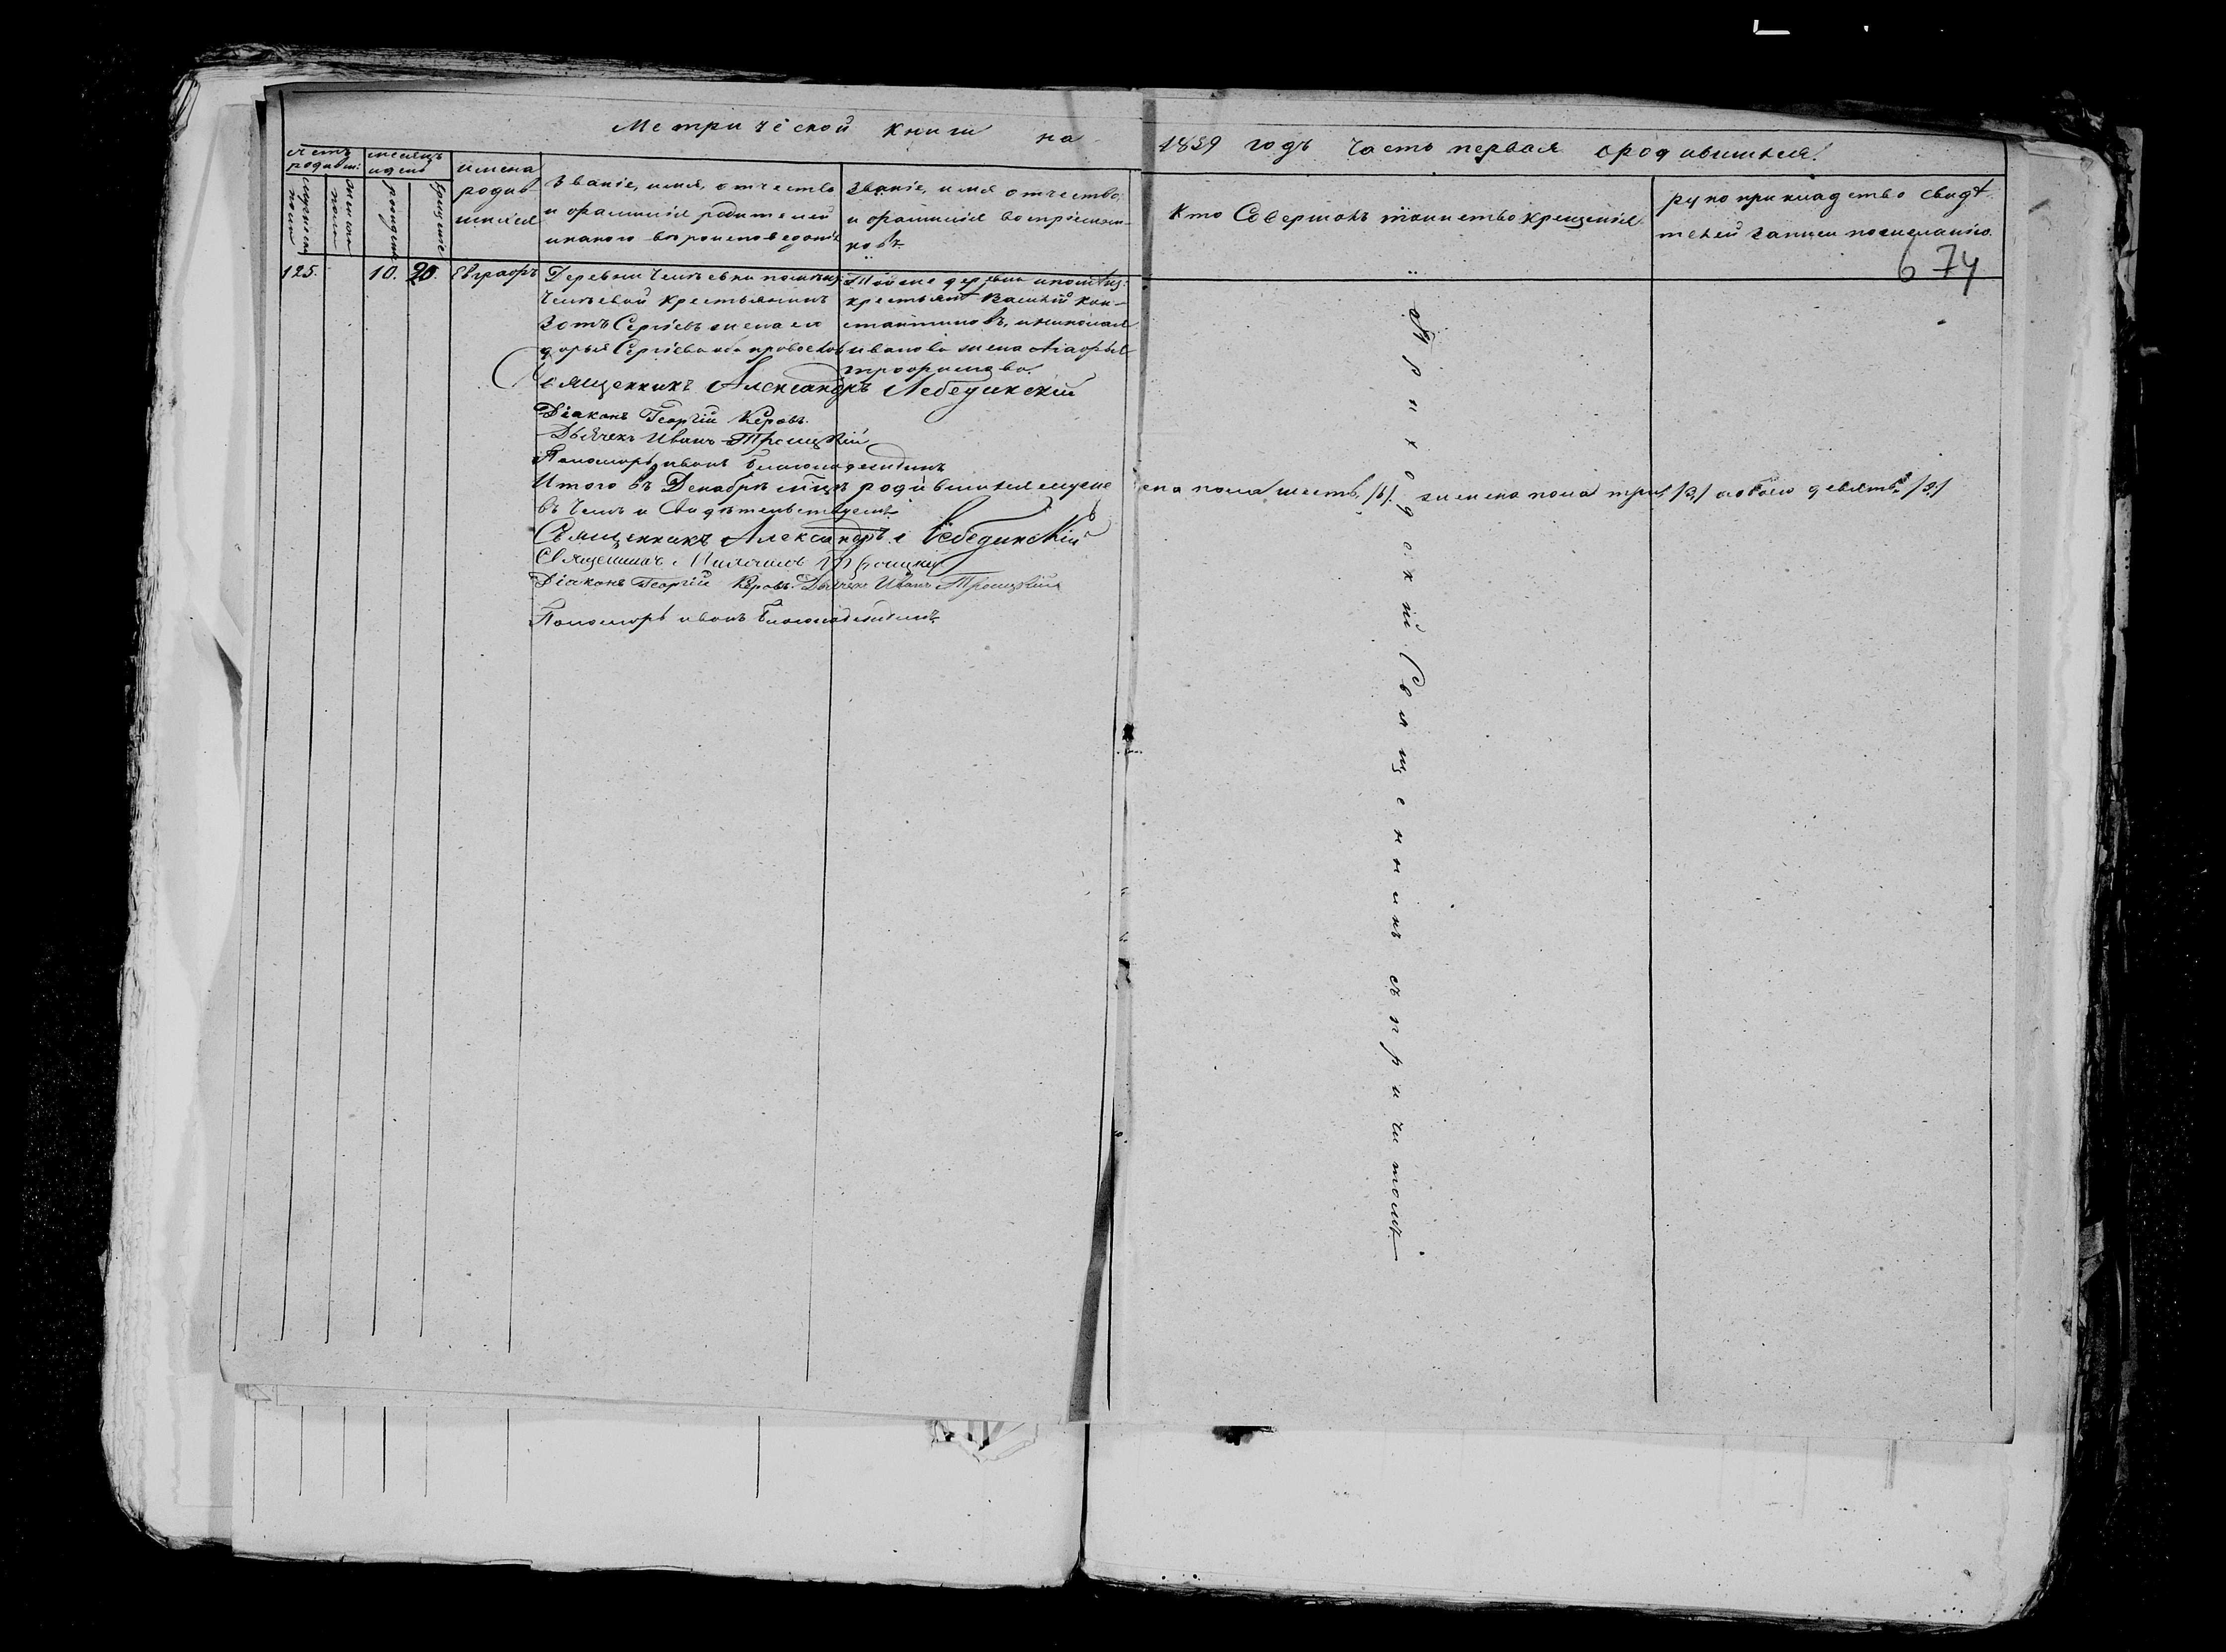 Метрической книги на 1839 годъ Часть первая ородившихся.
счетъ родивш:
мужеска пола
женска пола
месяцъ и день
рожденіе
крещеніе
имена родив шихся
Званіе, имя, отчество и фамилія родителей и какого вероисповеданія
Званіе, имя отчество, и фамилія воспріемни- ковъ.
Кто Совершалъ таинство крещенія
рукоприкладство свидѣ- телей записи пожеланію.
674
125. 10. 20. Евграфъ
Деревни
крестьянинъ
Зотъ Сергіевъ жена его
дарья Сергіева оба православ
Тойже деревни
крестьян Василій Кон-
стантиновъ, и николая
иванова жена Марья
трофимова.
Священникъ Александръ Лебединскій
Діаконъ Георгій Керовъ.
Дьячекъ Иванъ Троицкій
Пономорь иванъ
Итого въ Декабрѣ мцѣ родившихся мужеска пола шесть, /6/. женска пола три, /3/ обоего девять /9/
въ чемъ и Свидетельствуемъ
Священникъ Александръ Лебединскій
Священникъ
Діаконъ Георгій Керовъ. Дьячекъ Иванъ Троицкій
Пономорь иванъ
Приходскій Священникъ съ причтомъ